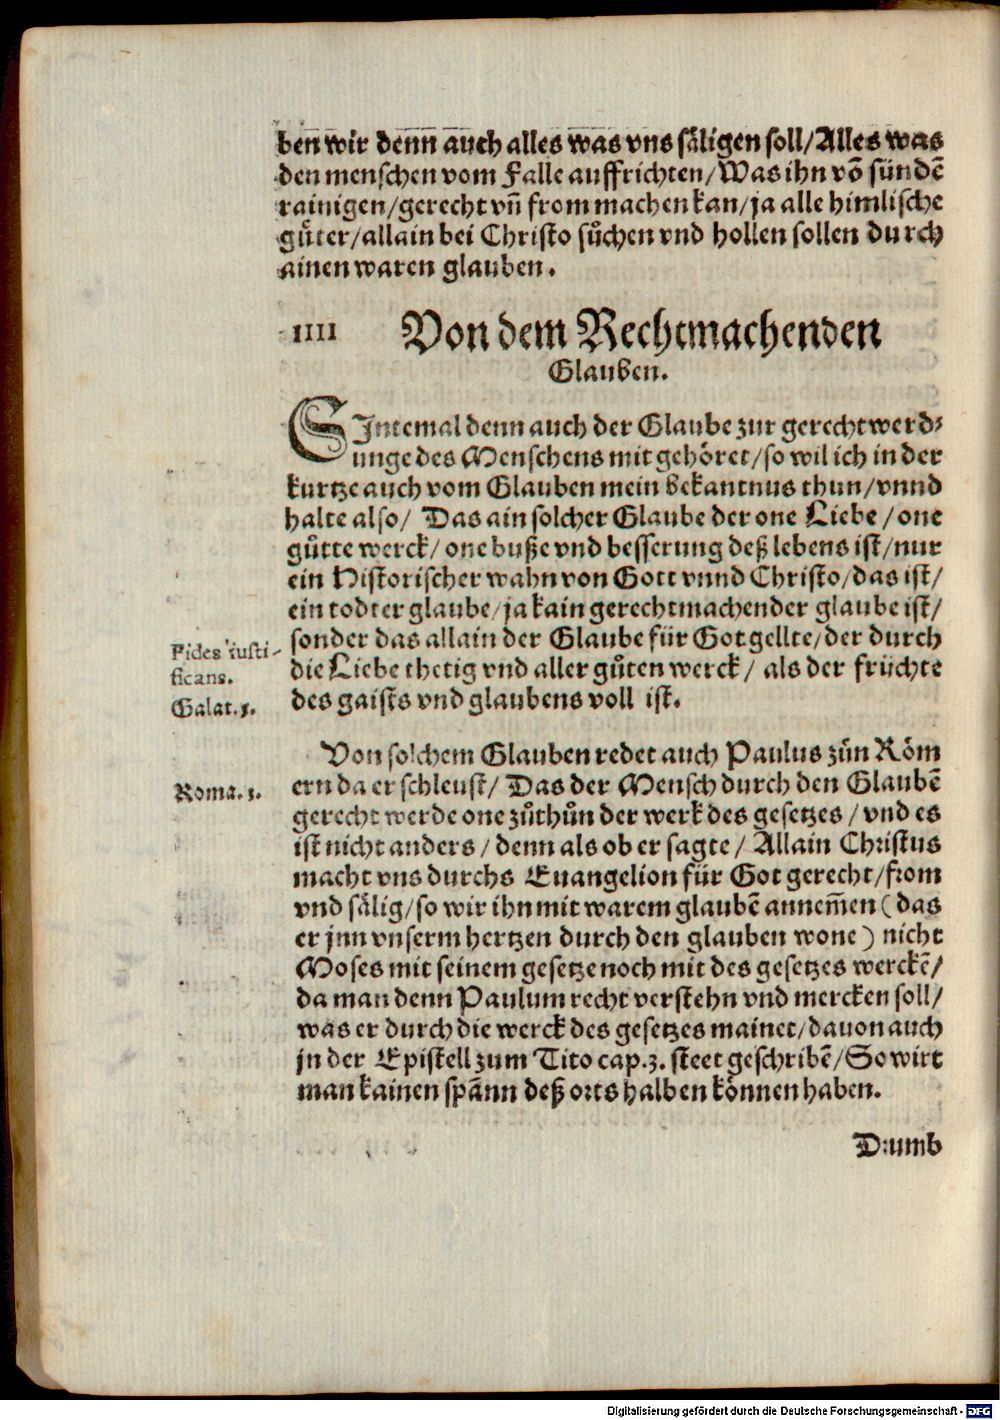 ben wir denn auch alles was vns säligen soll/Alles was
den menschen vom Falle auffrichten/Was ihn võ sündẽ
rainigen/gerecht vñ from machen kan/ja alle himlische
gůter/allain bei Christo sůchen vnd hollen sollen durch
ainen waren glauben.
IIII Von dem Rechtmachenden
Glauben.
SIntemal denn auch der Glaube zur gerechtwerd⸗
unge des Menschens mit gehöret/so wil ich in der
kurtze auch vom Glauben mein bekantnus thun/vnnd
halte also/ Das ain solcher Glaube der one Liebe/one
gůtte werck/one buße vnd besserung deß lebens ist/nur
ein Historischer wahn von Gott vnnd Christo/das ist/
ein todter glaube/ja kain gerechtmachender glaube ist/
sonder das allain der Glaube für Got gellte/der durch
die Liebe thetig vnd aller gůten werck/ als der früchte
des gaists vnd glaubens voll ist.
Fides iusti-
ficans.
Galat.5.
Von solchem Glauben redet auch Paulus zůn Röm
ern da er schleust/ Das der Mensch durch den Glaubẽ
gerecht werde one zůthůn der werk des gesetzes/vnd es
ist nicht anders/denn als ob er sagte/ Allain Christus
macht vns durchs Euangelion für Got gerecht/from
vnd sälig/so wir ihn mit warem glaubẽ annem̃en (das
er jnn vnserm hertzen durch den glauben wone) nicht
Moses mit seinem gesetze noch mit des gesetzes werckẽ/
da man denn Paulum recht verstehn vnd mercken soll/
was er durch die werck des gesetzes mainet/dauon auch
jn der Epistell zum Tito cap.3. steet geschribẽ/So wirt
man kainen spãnn deß orts halben können haben.
Roma.3.
Drumb
Digitalisierung gefördert durch die Deutsche Forschungsgemeinschaft - DFG